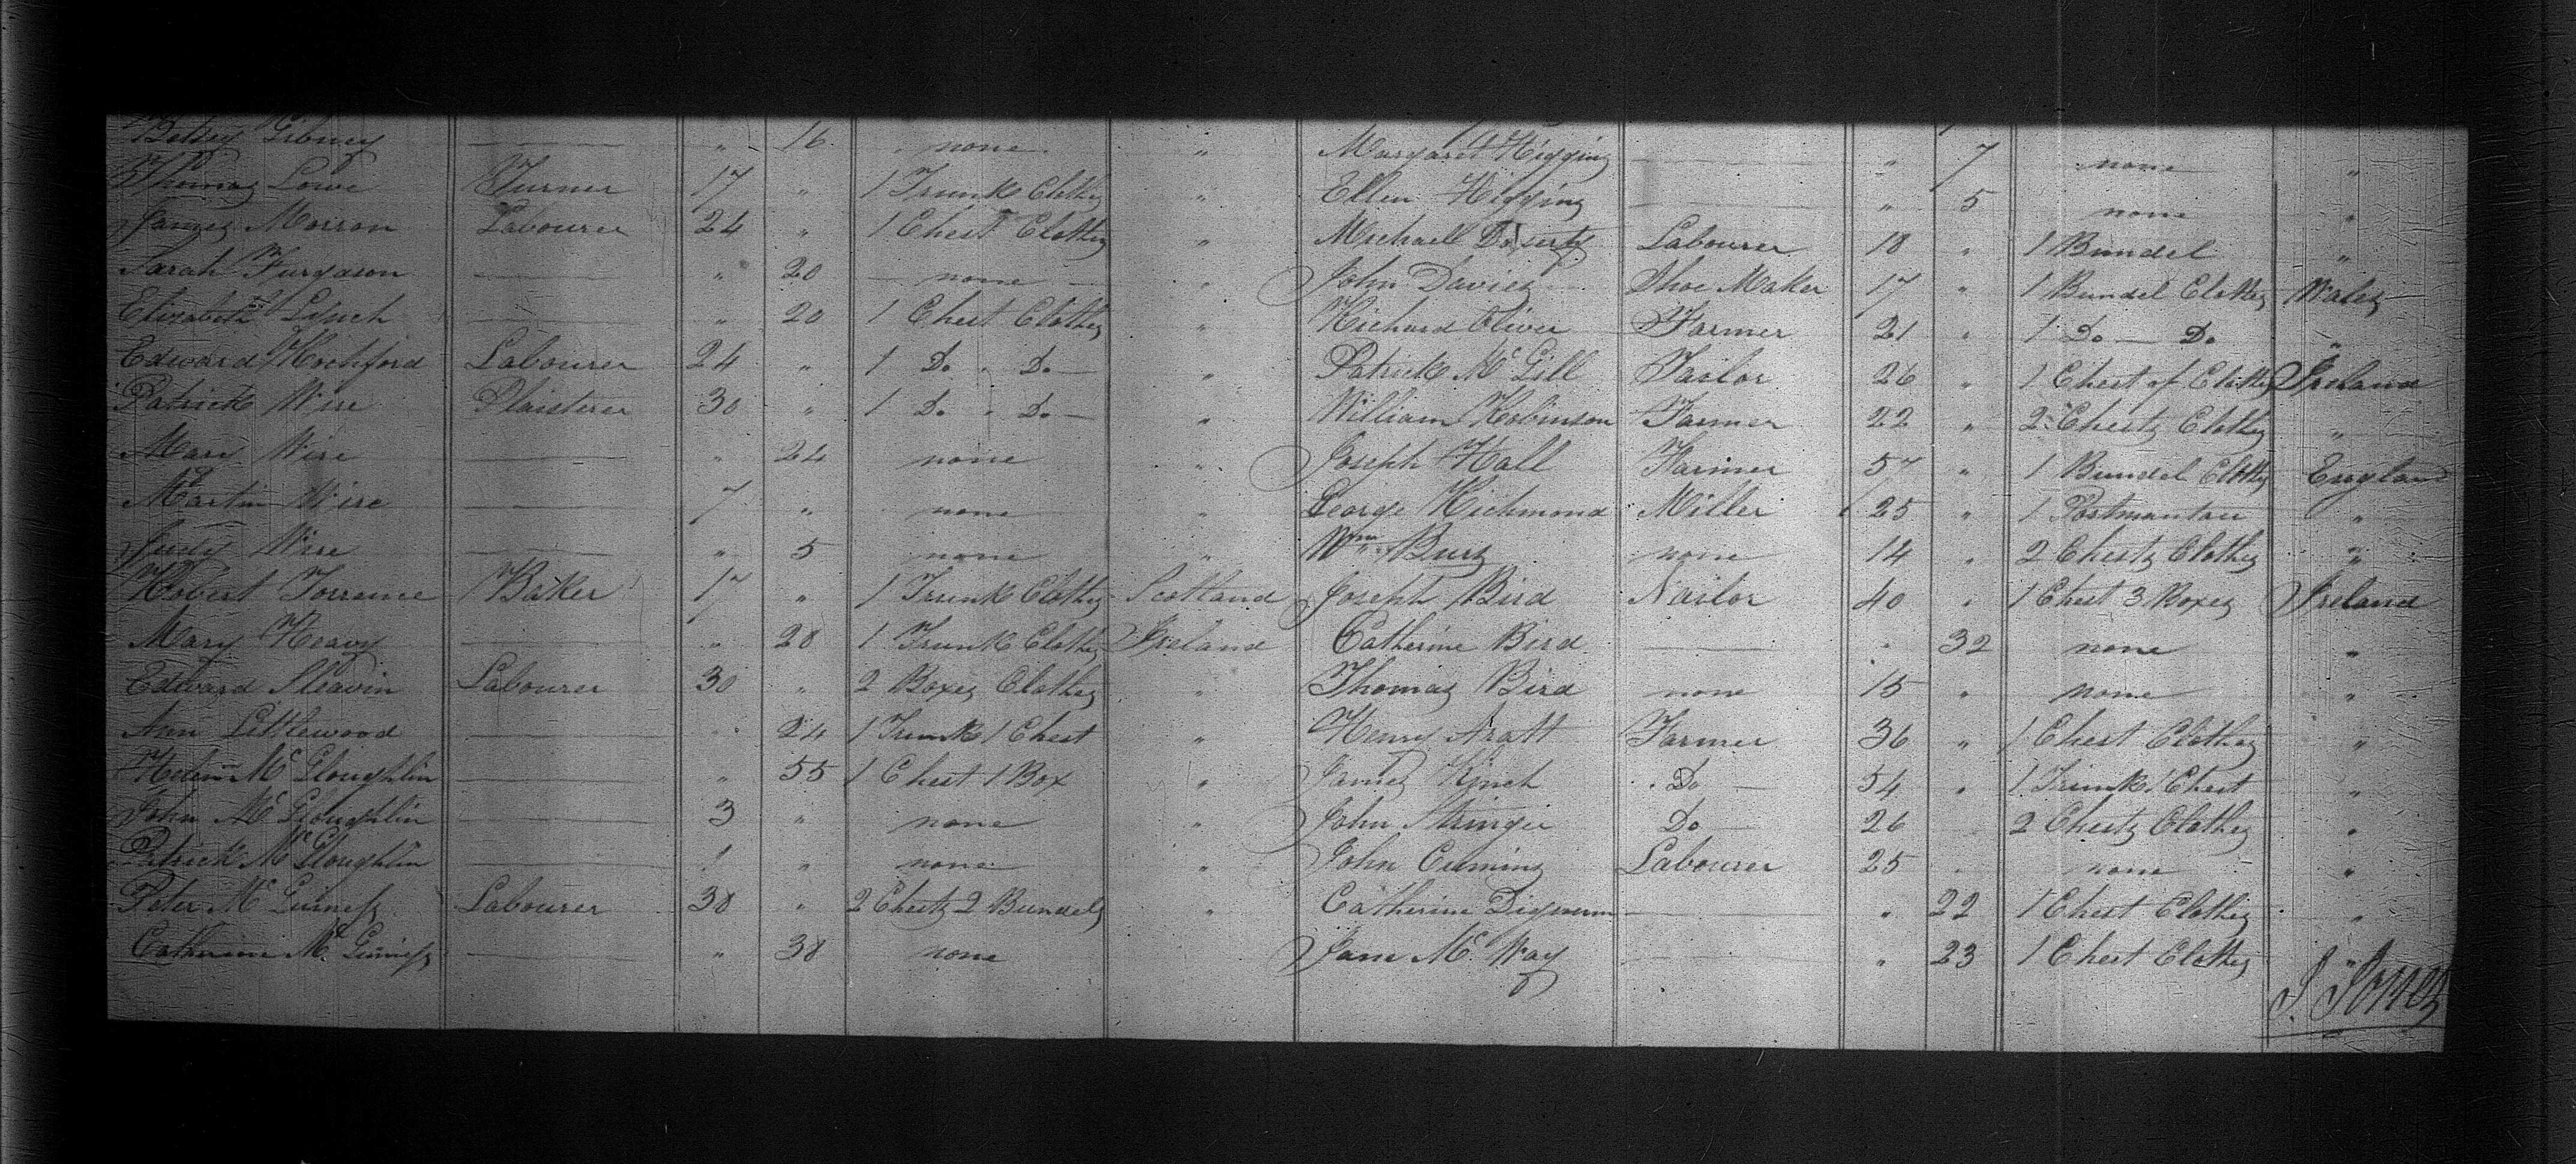 Betsy Gibney — " 16 none "
Thomas Lowe Turner 17 " 1 Trunk Clothes "
James Morron Labourer 24 " 1 Chest Clothes "
Sarah Furgason — " 20 none "
Elizabeth Lynch — " 20 1 Chest Clothes "
Edward Rochford Labourer 24 " 1 Do " Do "
Patrick Wire Plaisterer 30 " 1 Do " Do "
Mary Wire — " 24 none "
Martin Wire — 7 " none "
Judy Wire — " 5 none "
Robert Torrance Baker 17 " 1 Trunk Clothes Scotland
Mary Heavy — " 28 1 Trunk Clothes Ireland
Edward Slavin Labourer 30 " 2 Boxes Clothes "
Ann Littlewood — " 24 1 Trunk 1 Chest "
McGloughlin — " 55 1 Chest 1 Box "
John McGloughlin — 3 " none "
Patrick McGloughlin — 1 " none "
Peter McGuiness Labourer 38 " 2 Chests 2 Bundels "
Catherine McGuiness — " 38 none
Margaret Higgins — " 7 none "
Ellen Higgins — " 5 none "
Michael Labourer 18 " 1 Bundel "
John Davies Shoe Maker 17 " 1 Bundel Clothes Wales
Richard Oliver Farmer 21 " 1 Do — Do "
Patrick McGill Tailor 26 " 1 Chest of Clothes Ireland
William Robinson Farmer 22 " 2 Chests Clothes "
Joseph Hall Farmer 57 " 1 Bundel Clothes England
George Richmond Miller 25 " 1 Portmantau "
Wm Burs none 14 " 2 Chests Clothes "
Joseph Bird Nailor 40 " 1 Chest 3 Boxes Ireland
Catherine Bird — " 32 none "
Thomas Bird none 15 " none "
Henry Aratt Farmer 36 " 1 Chest Clothes "
James Kinch Do 54 " 1 Trunk 1 Chest "
John Stringer Do 26 2 Chests Clothes "
John Cuming Labourer 25 " none "
Catherine Dignum — " 22 1 Chest Clothes "
Jane Mc Way — " 23 1 Chest Clothes "
J. Jones